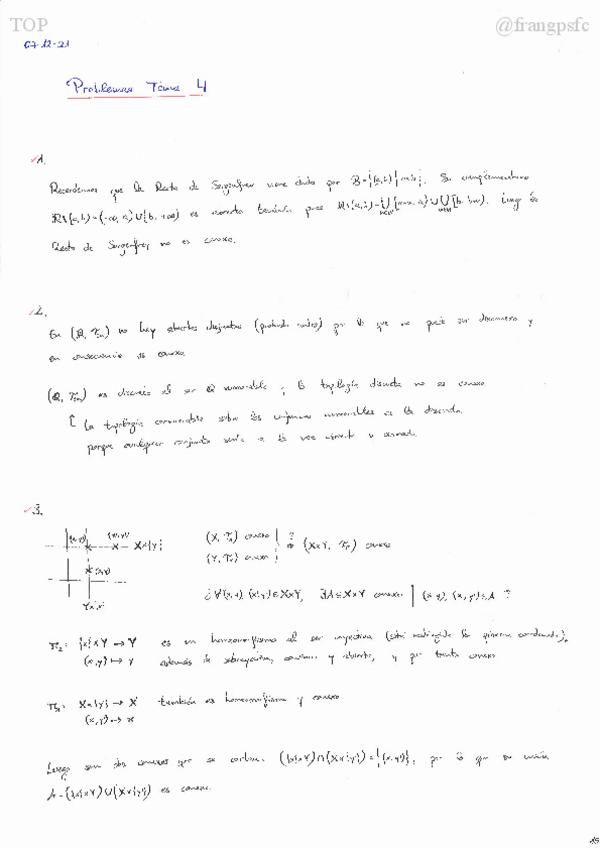 TOP
@frangpsfc
07-12-21
Problemas Tema 4
1.
Recordemos que la Recta de Sorgenfrey viene dada por B={[a,b) | a<b}. Su complementario
ℝ\[a,b)=(-∞,a)∪[b,+∞) es abierto también pues Luego la
Recta de Sorgenfrey no es conexa.
2.
En (ℝ, ) no hay abiertos disjuntos por lo que no puede ser disconexo y
en consecuencia es conexo.
es discreta al ser ℚ numerable y la topología discreta no es conexa
La topología conumerable sobre los conjuntos numerables es la discreta
porque cualquier conjunto sería a la vez abierto y cerrado.
3.
X×{y}
(X, ) conexo
(Y, ) conexo
(X×Y, ) conexo
¿∀(x,y), (x',y')∈X×Y, ∃A⊆X×Y conexo | (x,y), (x',y')∈A ?
π₂: {x}×Y → Y es un homeomorfismo al ser inyectiva
(x,y) ↦ y además de sobreyectiva, continua y abierta, y por tanto conexo
π₁: X×{y} → X también es homeomorfismo y conexo
(x,y) → x
Luego son dos conexos que se cortan. ({x}×Y)∩(X×{y})={(x,y)}, por lo que su unión
A=({x}×Y)∪(X×{y}) es conexa.